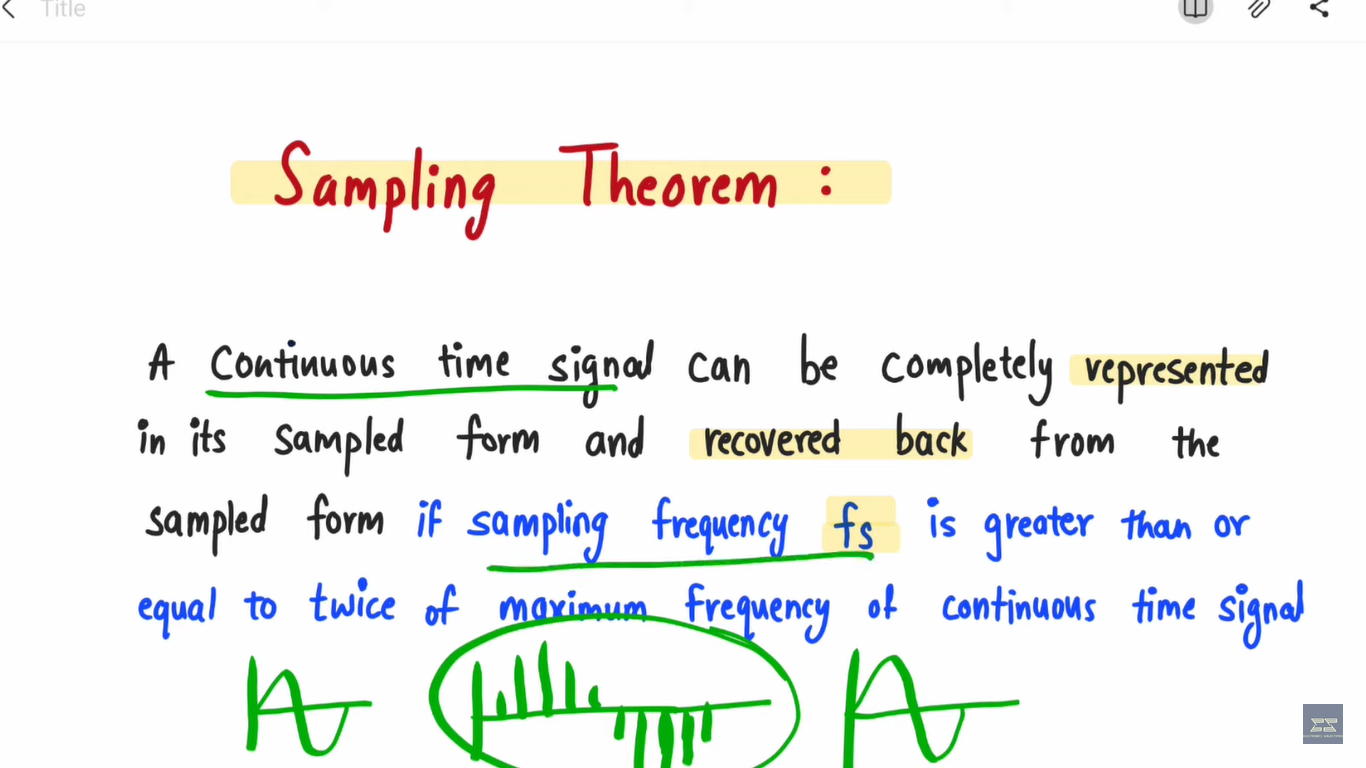 Title
Sampling Theorem :
A Continuous time signal can be completely represented
in its sampled form and recovered back from the
sampled form if sampling frequency fs is greater than or
equal to twice of maximum frequency of continuous time signal